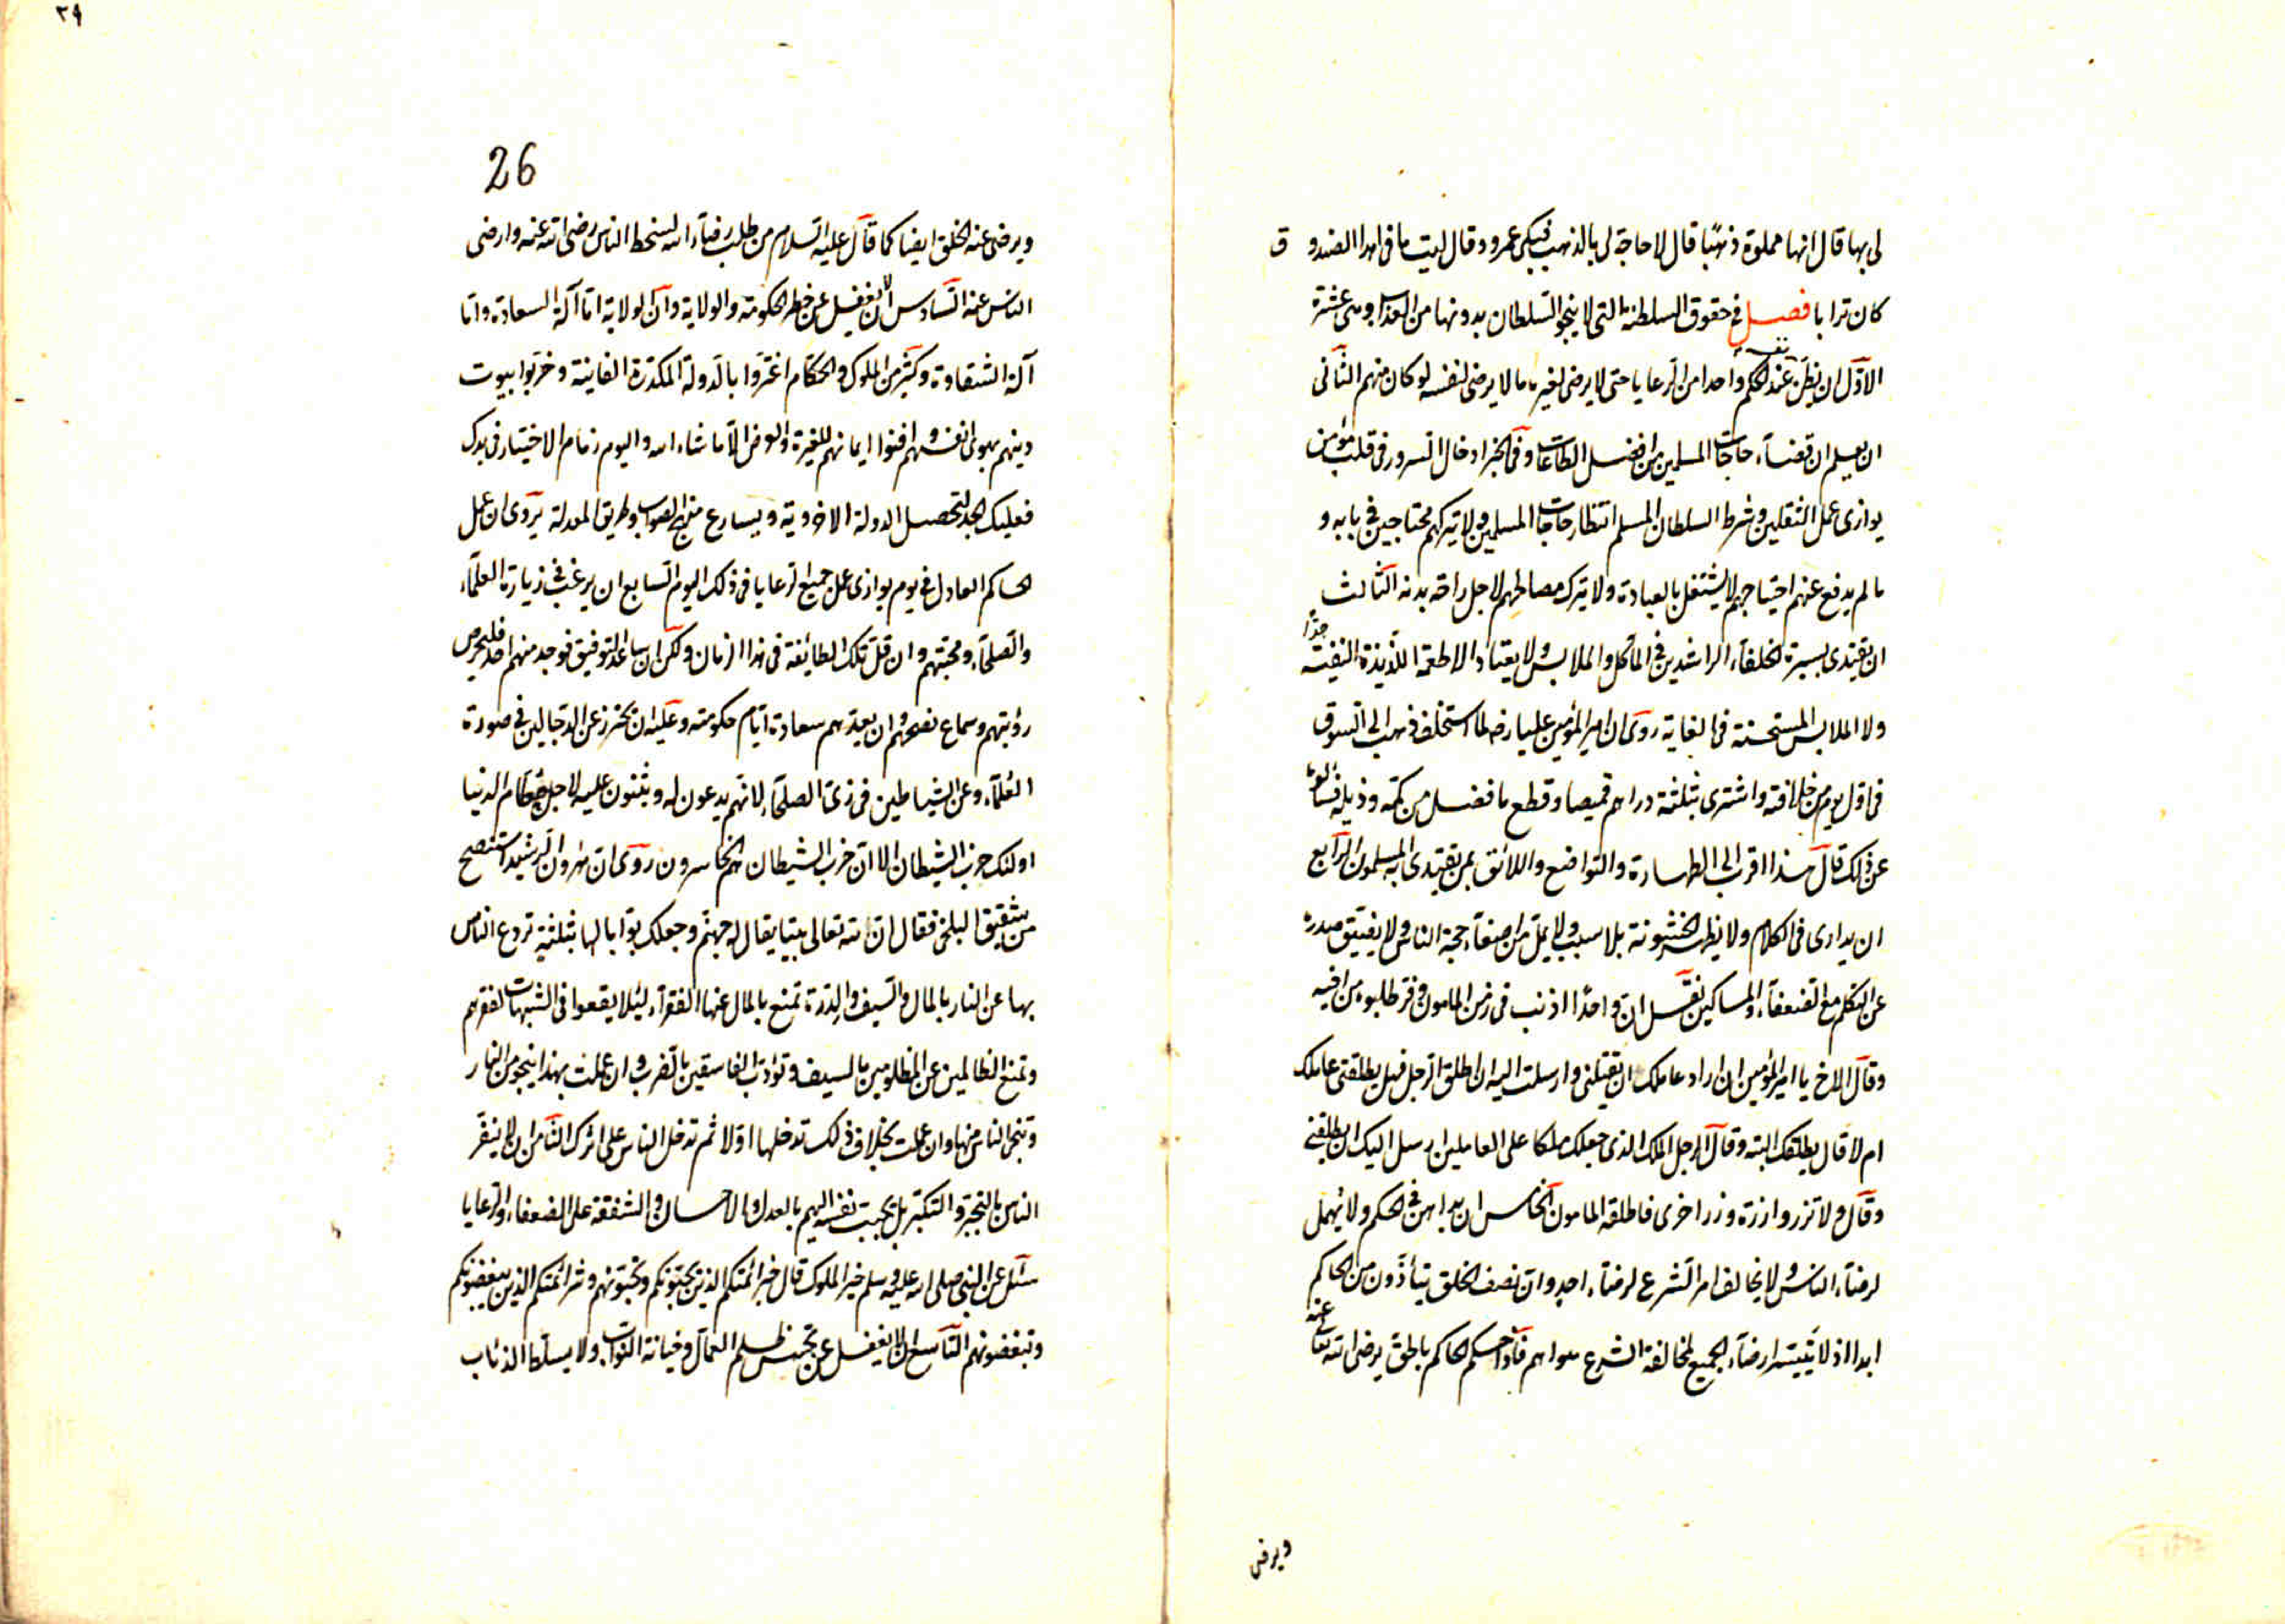 لى بها قال انها مملوة ذهبا قال لا حاجة لى بالذهب فبكى عمرو وقال ليت ما فى هذا الصندوق
كان ترابا فصل فى حقوق السلطنة التى لا ينجو السلطان بدونها من العذاب وهى عشرة
الاول ان يظن نفسه عند الحكم واحدا من الرعايا حتى لا يرضى لغيره ما لا يرضى لنفسه لو كان منهم الثانى
ان يعلم ان قضاء حاجات المسلمين من افضل الطاعات وفى الخبر ادخال السرور فى قلب مؤمن
يوازى عمل الثقلين وشرط السلطان المسلم انتظار حاجات المسلمين ولا يتركهم محتاجين فى بابه و
ما لم يدفع عنهم احتياجهم لا يشتغل بالعبادة ولا يترك مصالحهم لاجل راحة بدنه الثالث
ان يقتدى بسيرة الخلفاء الراشدين فى المأكل والملابس ولا يعتاد الاطعمة اللذيذة النفيسة جدا
ولا الملابس المستحسنة فى الغاية روى ان امير المؤمنين عليا رضه لما استخلف ذهب الى السوق
فى اول يوم من خلافته واشترى بثلثة دراهم قميصا وقطع ما فضل من كمه وذيله فسألوا
عن ذلك قال هذا اقرب الى الطهارة والتواضع واللائق بمن يقتدى به المسلمون الرابع
ان يدارى فى الكلام ولا يظهر الخشونة بلا سبب ولا يمل من اصغاء حجة الناس ولا يضيق صدره
عن التكلم مع الضعفاء والمساكين نقل ان واحدا اذنب فى زمن المامون وفر طلبوه من اخيه
وقال الاخ يا امير المؤمنين ان اراد عاملك ان يقتلنى وارسلت اليه ان اطلق الرجل فهل يطلقنى عاملك
ام لا قال يطلقك البتة وقال الرجل الملك الذى جعلك ملكا على العاملين ارسل اليك ان يطلقنى
وقال ولا تزر وازرة وزر اخرى فاطلقه المامون الخامس ان لا يداهن فى الحكم ولا يهمل
لرضاء الناس ولا يخالف امر الشرع لرضاء احد وان نصف الخلق يتأذون من الحاكم
ابدا اذ لا يتيسر ارضاء الجميع لمخالفة الشرع هواهم فاذا حكم الحاكم بالحق يرضى الله تعالى عنه
ويرضى
٢٩
26
ويرضى عنه الخلق ايضا كما قال عليه السلام من طلب رضاء الله لسخط الناس رضى الله عنه وارضى
الناس عنه السادس ان لا يغفل عن خطر الحكومة والولاية وان الولاية اما آلة السعادة واما
آلة الشقاوة وكثير من الملوك والحكام اغتروا بالدولة المكدرة الفانية وخربوا بيوت
دينهم بهوى انفسهم وافنوا ايمانهم للغيرة والعرض الا ما شاء الله واليوم زمام الاختيار فى يدك
فعليك الجد لتحصل الدولة الاخروية ويسارع منهج الصواب وطريق المعدلة يروى ان عمل
الحاكم العادل فى يوم يوازى عمل جميع الرعايا فى ذلك اليوم السابع ان يرغب فى زيارة العلماء
والصلحاء ومحبتهم وان قل تلك الطائفة فى هذا الزمان ولكن ان ساعد التوفيق فوجد منهم احد فليحرص
رؤيتهم وسماع نصحهم وان يعد بهم سعادة ايام حكومته وعليه ان يحترز عن الدجالين فى صورة
العلماء وعن الشياطين فى زى الصلحاء لانهم يدعون له ويثنون عليه لاجل حطام الدنيا
اولئك حزب الشيطان الا ان حزب الشيطان هم الخاسرون روى ان هرون الرشيد استنصح
من شقيق البلخى فقال ان لله تعالى بيتا يقال له جهنم وجعلك بوابا لها بثلثة تردع الناس
بها عن النار بالمال والسيف والدرة تمنع بالمال عنها الفقراء لئلا يقعوا فى الشبهات لفقرهم
وتمنع الظالمين عن المظلومين بالسيف وتؤدب الفاسقين بالضرب وان عملت بهذا ينجو من النار
وتنجى الناس منها وان عملت بخلاف ذلك تدخلها اولا ثم تدخل الناس على اثرك الثامن ان لا ينفر
الناس بالتجبر والتكبر بل يحبب نفسه اليهم بالعدل والاحسان والشفقة على الضعفاء والرعايا
سئل عن النبى صلى الله عليه وسلم خير الملوك قال خير ائمتكم الذين يحبونكم وتحبونهم وشر ائمتكم الذين يبغضونكم
وتبغضونهم التاسع ان لا يغفل عن تجسس ظلم العمال وخيانة النواب ولا يسلط الذئاب